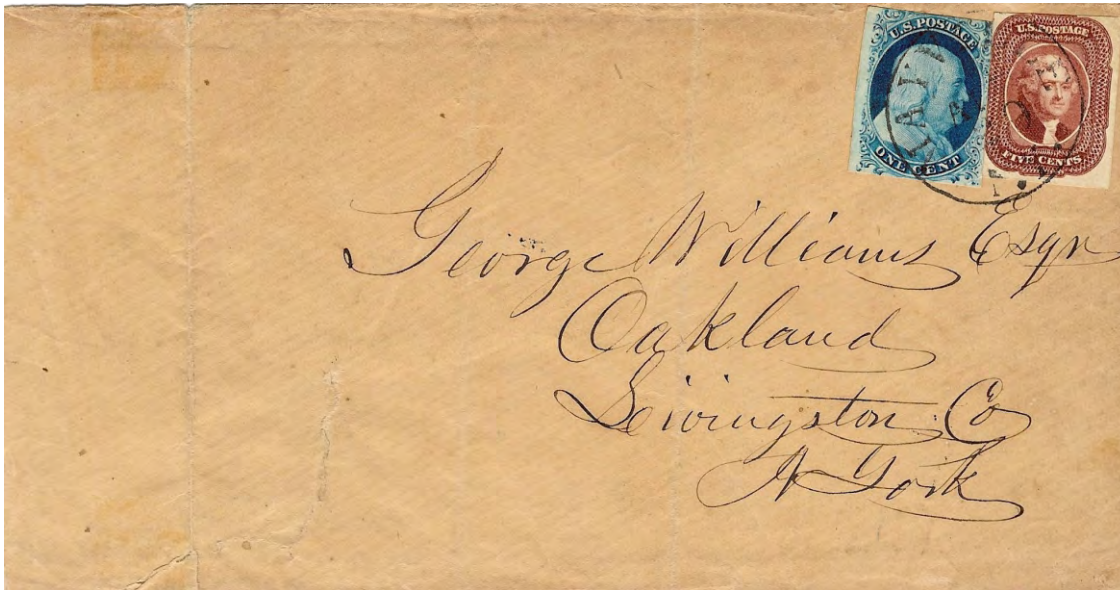 U.S. POSTAGE
ONE CENT
U.S. POSTAGE
FIVE CENTS
George Williams Esqr
Oakland
Livingston Co
N York